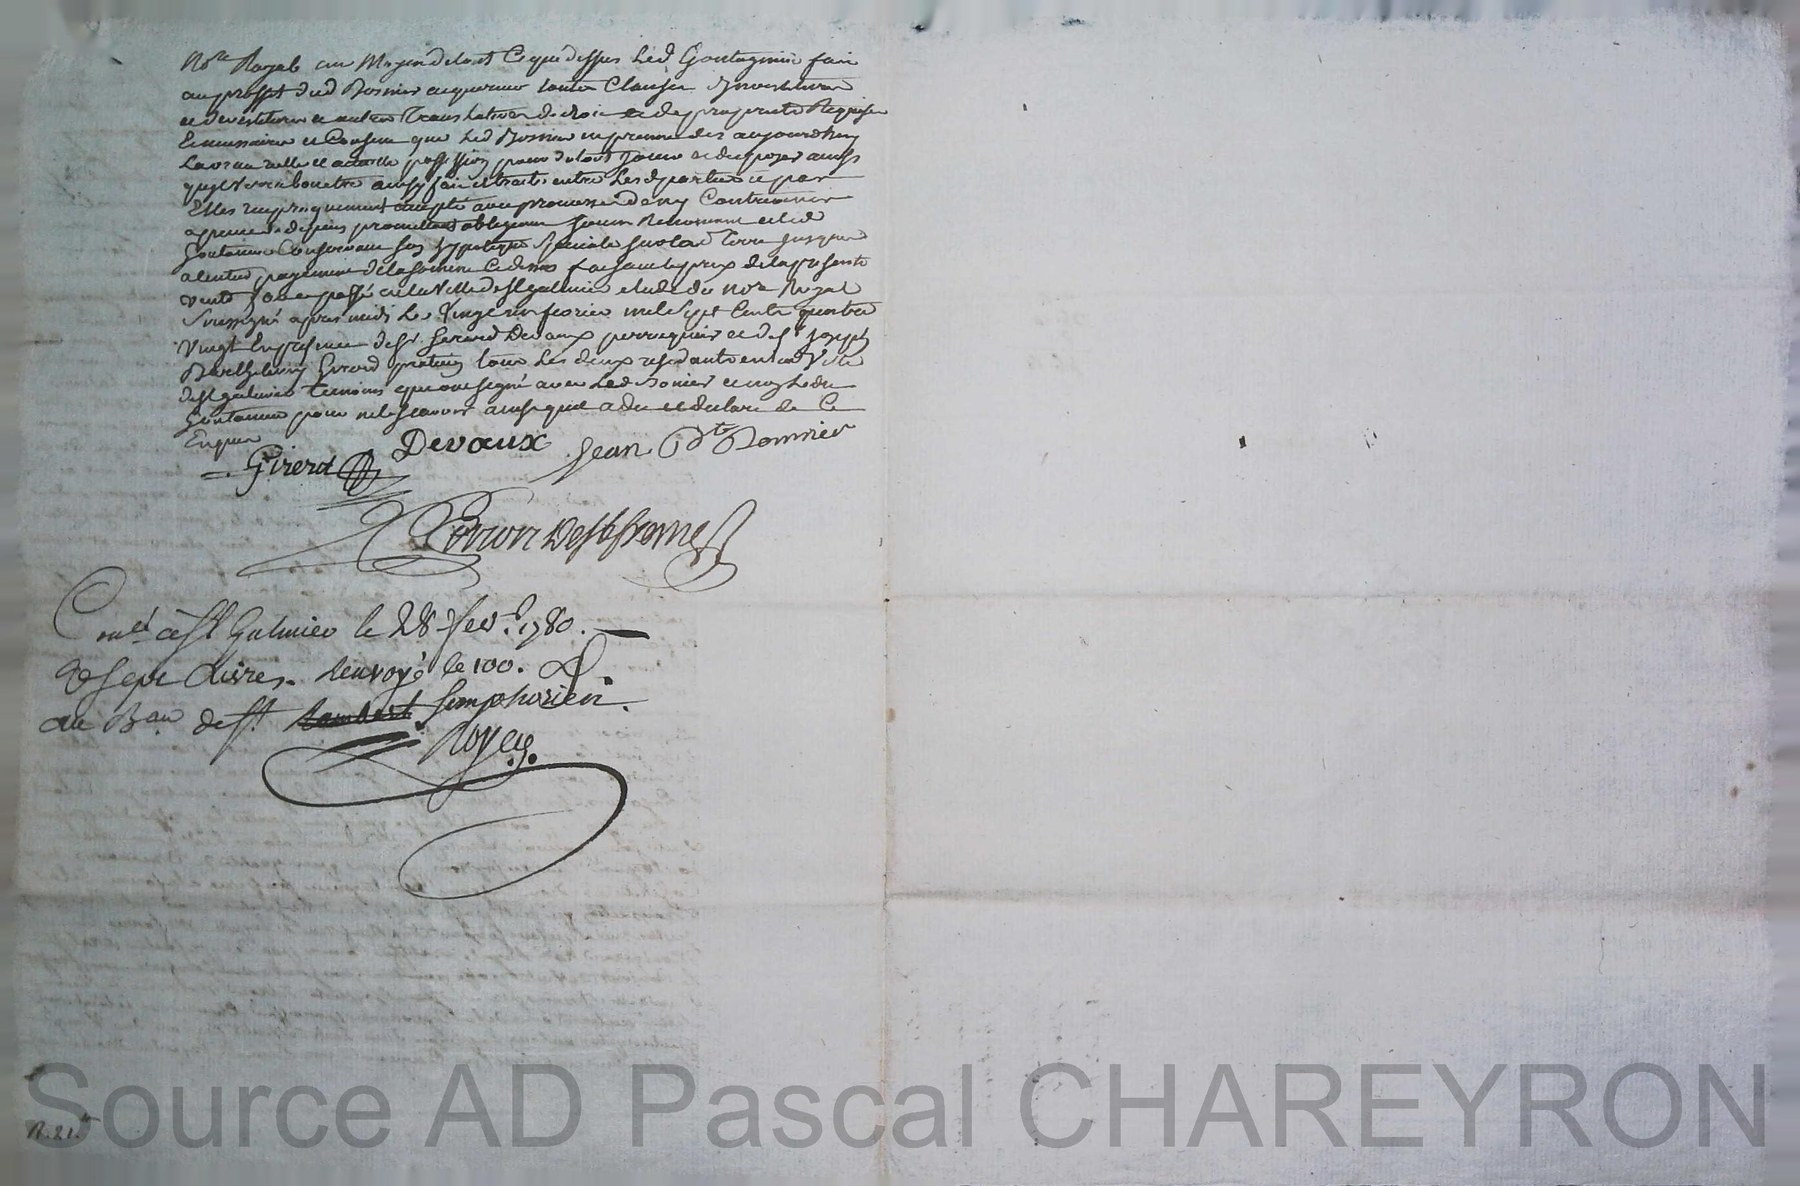 Nore Royal au Moyen de tout Ce que dessus led Goutagnieu fait
au proffit dud Bonnier acquereur toutes Clauses D'investiture
et devestiture et autres Translatives de droit et de propriete Requises
et necessaires et Consent que led Bonnier en prenne des aujourdhuy
La vraie reelle et actuelle possession pour du tout Jouir et disposer ainsi
ainsy fait et traité entre Les d parties et par
Elles reciproquement accepté avec promesse de ny Contrevenir
a peine de depens promettans obligeans soumn Renonceant et led
Conservant son hypoteque Speciale sur lad Terre Jusques
a lentier payement de la somme faisant le prix de la presente
vente fait et passé en la Ville de st galmier etude du Nore Royal
Soussigné apres midi Le vingt un fevrier mil sept Cents quatre
Vingt En presence de sr Devaux perruquier et de sr Joseph
Barthelemy Girerd praticien tous Les deux residants en lad Ville
de st galmier Temoins qui ont signé avec Led Bonnier et non Ledit
pour ne le scavoir ainsi quil a dit et declaré de Ce
Enquis
Girerd Devaux Jean Bte Bonnier
Conlé a St Galmier le 28 fevr. 1780.
sept Livres. renvoyé le 100. d.
au Bau de St. Rambert Simphorien.
Royer.
R. 21.
Source AD Pascal CHAREYRON